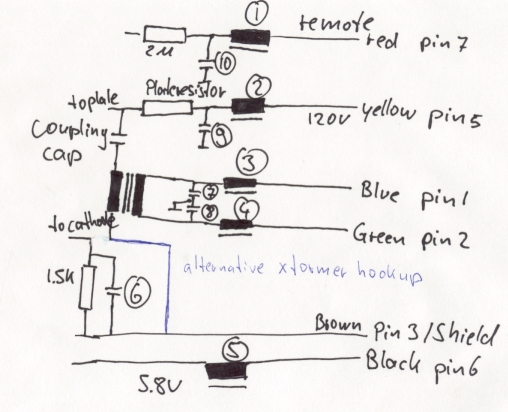 ① remote
2M red pin 7
⑩
Plateresistor ②
to plate yellow pin 5
120V
Coupling ⑨
cap
③
⑦ Blue pin 1
⑧ ④
to cathode Green pin 2
alternative xformer hookup
1.5K ⑥
Brown Pin 3/Shield
⑤ Black pin 6
5.8V